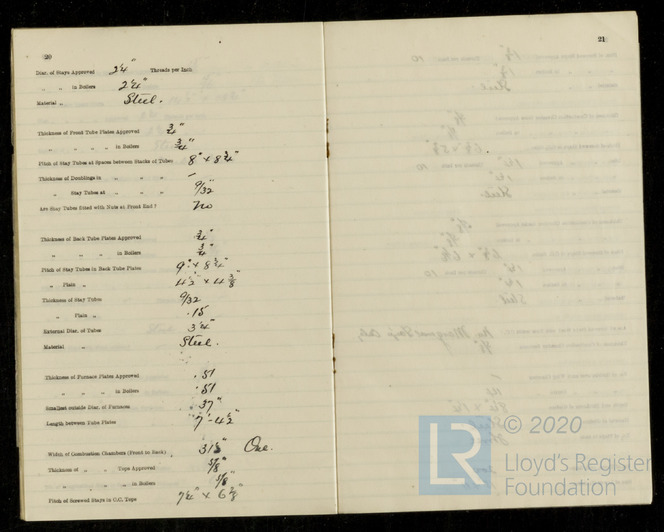 20
Diar. of Stays Approved 2¼" Threads per Inch
„ „ in Boilers 2¼"
Material „ Steel.
Thickness of Front Tube Plates Approved ¾"
„ „ „ „ in Boilers ¾"
Pitch of Stay Tubes at Spaces between Stacks of Tubes 8" x 8¾"
Thickness of Doublings in „ „ „ –
„ Stay Tubes at „ „ „ 9/32"
Are Stay Tubes fitted with Nuts at Front End? No
Thickness of Back Tube Plates Approved ¾"
„ „ „ in Boilers ¾"
Pitch of Stay Tubes in Back Tube Plates 9" x 8¾"
„ Plain „ 4½" x 4⅜"
Thickness of Stay Tubes 9/32
„ Plain „ .15
External Diar. of Tubes 3¼"
Material „ Steel.
Thickness of Furnace Plates Approved .51
„ „ „ in Boilers .51
Smallest outside Diar. of Furnaces 37"
Length between Tube Plates 7'-4½"
Width of Combustion Chambers (Front to Back) One.
Thickness of „ „ Tops Approved 5/8"
„ „ „ „ in Boilers 5/8"
Pitch of Screwed Stays in C.C. Tops
21
LR
© 2020
Lloyd's Register
Foundation